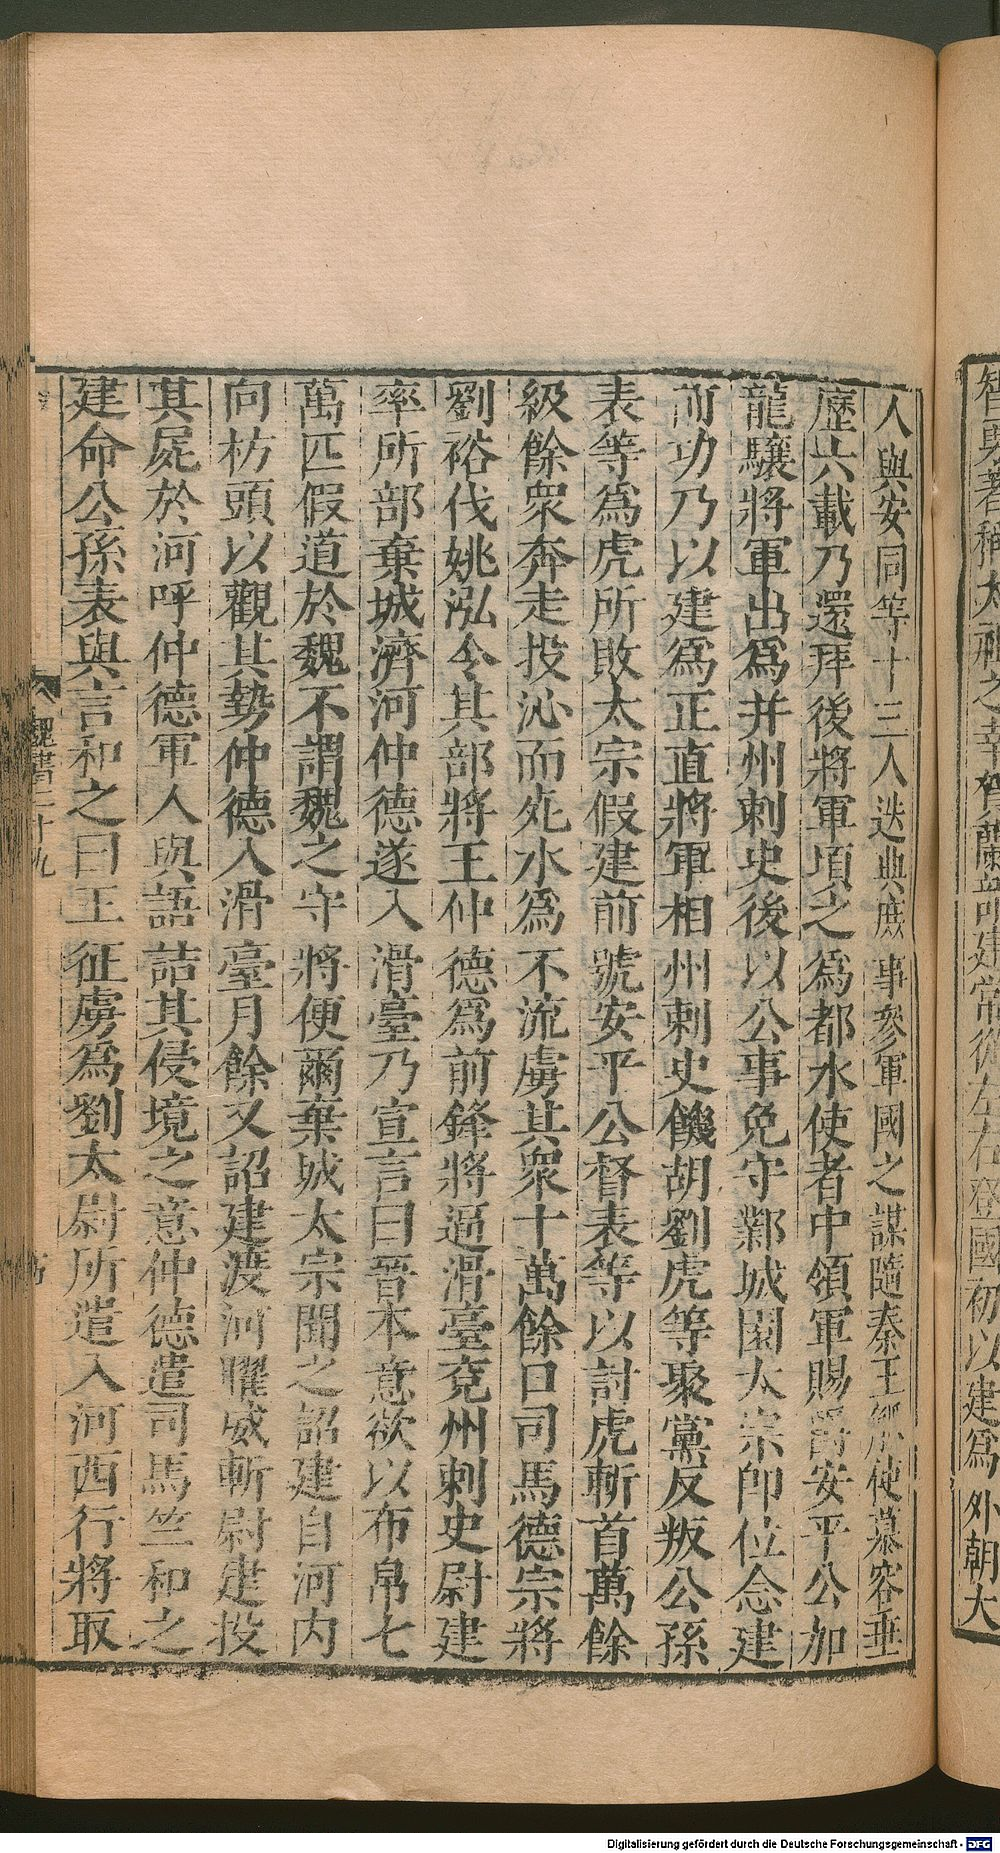 智與著稱太祖之幸賀蘭部建常從左右登國初以建爲外朝大
人與安同等十三人迭典庶事參軍國之謀隨秦王觚使慕容垂
歷六載乃還拜後將軍頃之爲都水使者中領軍賜爵安平公加
龍驤將軍出爲并州刺史後以公事免守鄴城園太宗即位念建
前功乃以建爲正直將軍相州刺史饑胡劉虎等聚黨反叛公孫
表等爲虎所敗太宗假建前號安平公督表等以討虎斬首萬餘
級餘衆奔走投沁而死水爲不流虜其衆十萬餘口司馬德宗將
劉裕伐姚泓令其部將王仲德爲前鋒將逼滑臺兗州刺史尉建
率所部棄城濟河仲德遂入滑臺乃宣言曰晉本意欲以布帛七
萬匹假道於魏不謂魏之守將便爾棄城太宗聞之詔建自河内
向枋頭以觀其勢仲德入滑臺月餘又詔建渡河曜威斬尉建投
其屍於河呼仲德軍人與語詰其侵境之意仲德遣司馬竺和之
建命公孫表與言和之曰王征虜爲劉太尉所遣入河西行將取
魏書二十九
Digitalisierung gefördert durch die Deutsche Forschungsgemeinschaft - DFG